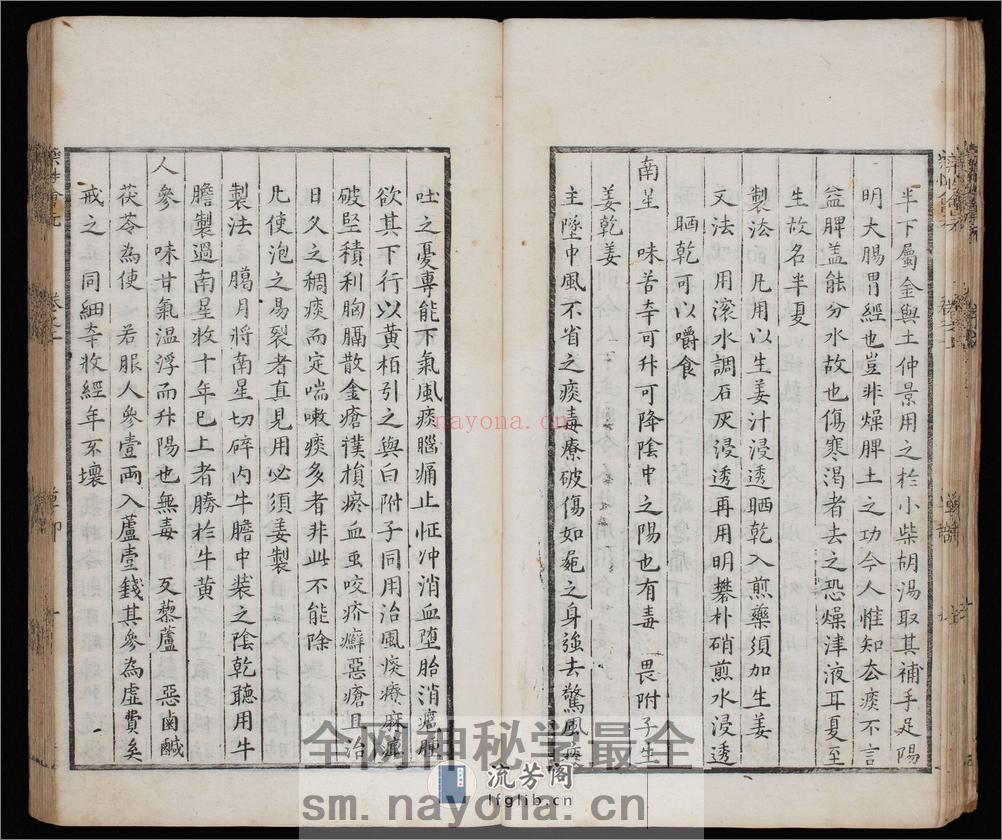 半下屬金與土仲景用之於小柴胡湯取其補手足陽
明大腸胃經也豈非燥脾土之功今人惟知去痰不言
益脾盖能分水故也傷寒渴者去之恐燥津液耳夏至
生故名半夏
製法凡用以生姜汁浸透晒乾入煎藥須加生姜
又法用滾水調石灰浸透再用明礬朴硝煎水浸透
晒乾可以嚼食
南星 味苦辛可升可降陰中之陽也有毒 畏附子生
姜乾姜
主墜中風不省之痰毒療破傷如屍之身強去驚風痰
吐之憂專能下氣風痰腦痛止怔冲消血堕胎消瘡腫
欲其下行以黄栢引之與白附子同用治風痰療麻痺
破堅積利胸膈散金瘡撲損瘀血虫咬疥癬惡瘡且治
日久之稠痰而定喘嗽痰多者非此不能除
凡使泡之易裂者真見用必須姜製
製法 臈月將南星切碎內牛膽中装之陰乾聽用牛
膽製過南星收十年已上者勝於牛黄
人參 味甘氣温浮而升陽也無毒 反藜蘆 惡鹵鹹
茯苓為使 若服人參壹兩入蘆壹錢其參為虛費矣
戒之 同細辛收經年不壞
nayona.cn
全网神秘学最全
流芳阁
lfglib.cn
sm.nayona.cn